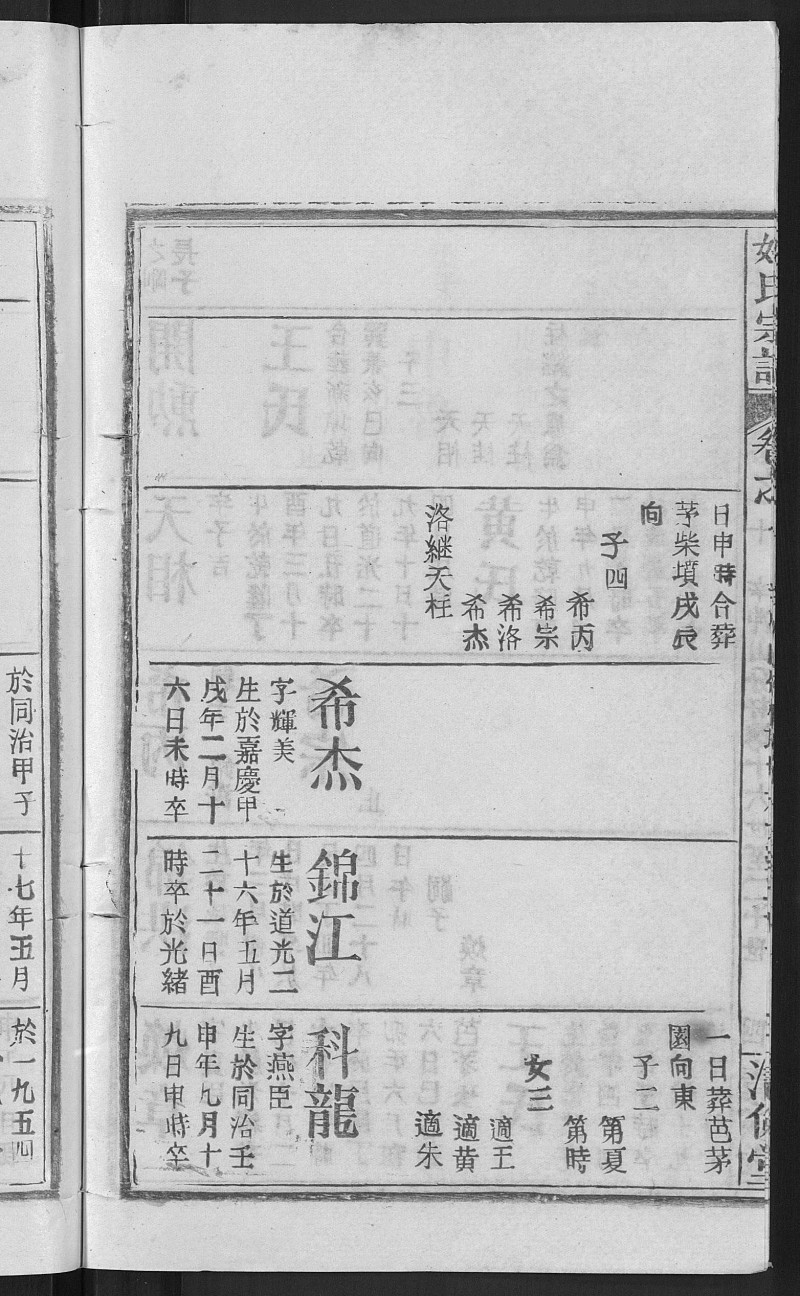 日申時合葬
茅柴墳戌辰
向
子四
希丙
希宗
希洛
希杰
洛継天柱
希杰
字輝美
生於嘉慶甲
戌年二月十
六日未時卒
錦江
生於道光二
十六年五月
二十一日酉
時卒於光緒
一日葬芭茅
園向東
子二
第夏
第時
女三
適王
適黄
適朱
科龍
字燕臣
生於同治壬
申年九月十
九日申時卒
於同治甲子
十七年五月
於一九五四